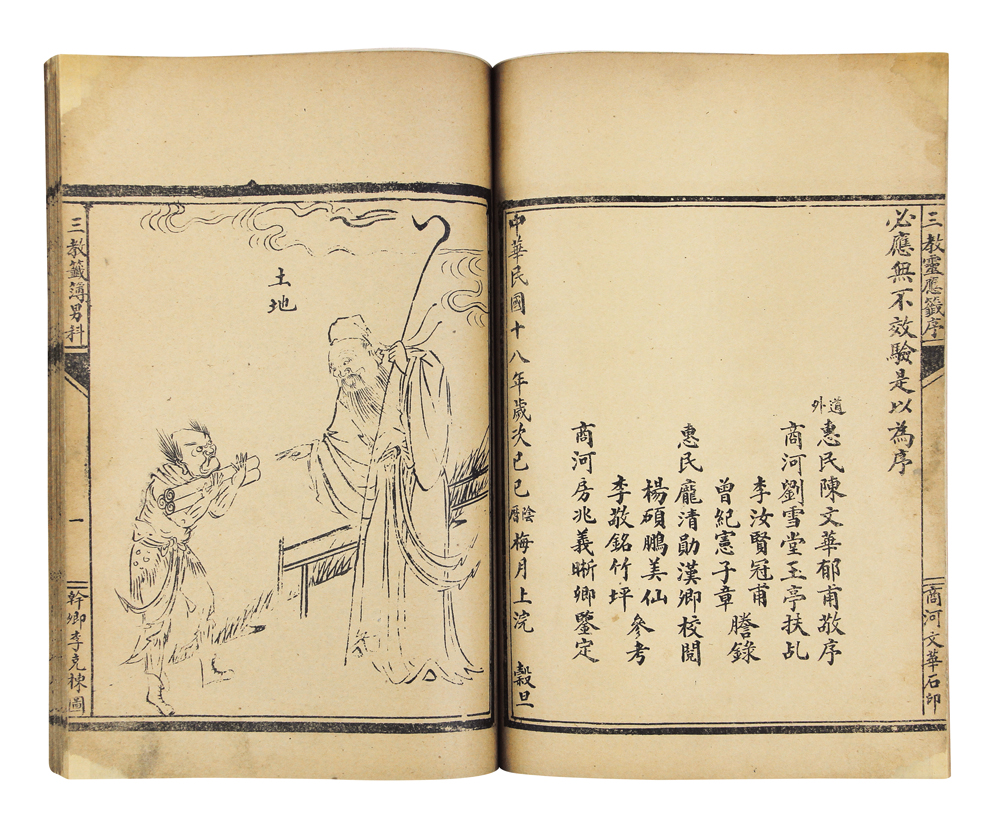 三教靈應籤序
商河文華石印
必應無不效驗是以為序
道外
惠民陳文華郁甫敬序
商河劉雪堂玉亭扶乩
李汝賢冠甫
曾紀憲子章
謄錄
惠民龐清勛漢卿校閱
楊碩鵬美仙
李敬銘竹坪
參考
商河房兆義晰卿鑒定
中華民國十八年歲次己巳陰曆梅月上浣 穀旦
土地
三教籤簿男科
一
幹卿李克棟圖